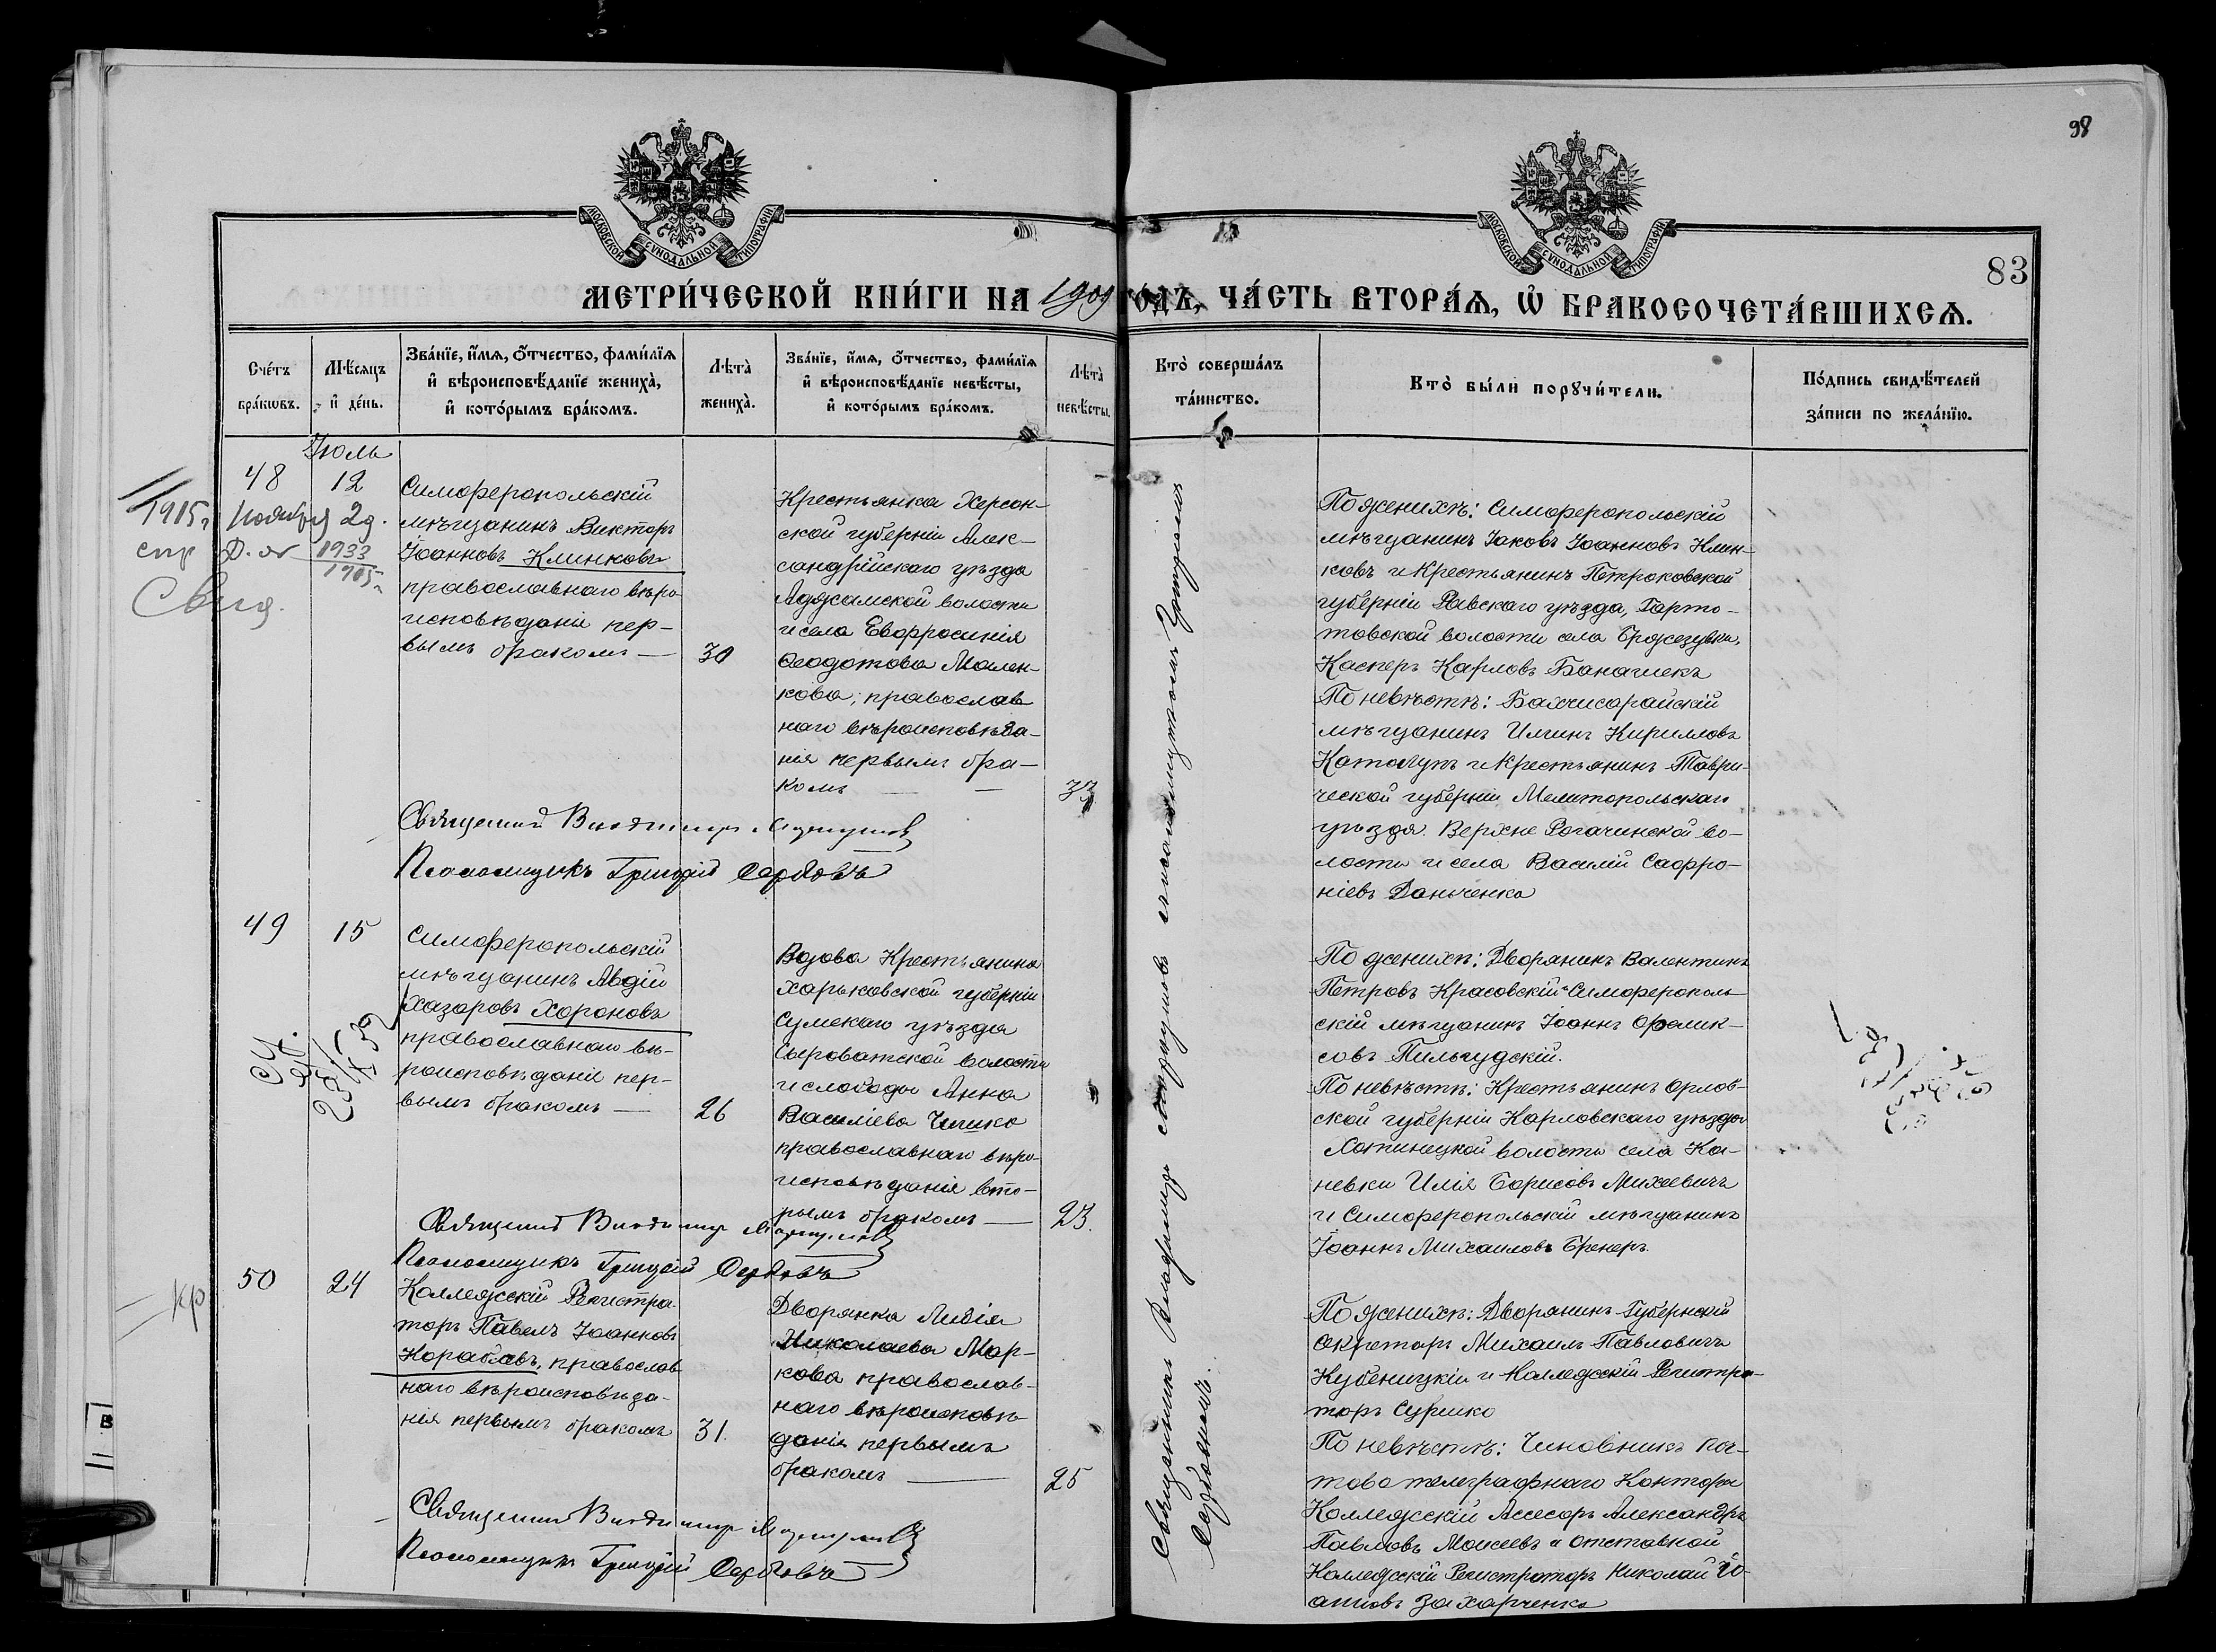 98
МОСКОВСКОЙ СѴНОДАЛЬНОЙ ТИПОГРАФІИ
МОСКОВСКОЙ СѴНОДАЛЬНОЙ ТИПОГРАФІИ
83
МЕТРИ́ЧЕСКОЙ КНИ́ГИ НА 1909 ГО́ДЪ, ЧА́СТЬ ВТОРА́Ѧ, Ѽ БРАКОСОЧЕТА́ВШИХСѦ.
Сче́тъ
бра́кѡвъ.
Мѣ́сѧцъ
и҆ де́нь.
Зва́нїе, и҆́мѧ, ѻ҆́тчество, фами́лїѧ
и҆ вѣроисповѣ́данїе жениха̀,
и҆ кото́рымъ бра́комъ.
Лѣта̀
жениха̀.
Зва́нїе, и҆́мѧ, ѻ҆́тчество, фами́лїѧ
и҆ вѣроисповѣ́данїе невѣ́сты,
и҆ кото́рымъ бра́комъ.
Лѣта̀
невѣ́сты.
Кто̀ соверша́лъ
та́инство.
Кто̀ бы́ли порꙋчи́тели.
По́дпись свидѣ́телей
за́писи по жела́нїю.
Іюль
48
12
1915 г. Ноября 2 д.
спр Д. № 1933
1915 г.
Свид.
Симферопольскій
мѣщанинъ Викторъ
Іоанновъ Клинковъ
православнаго вѣро-
исповѣданія пер-
вымъ бракомъ —
30
Крестьянка Херсон-
ской губерніи Алек-
сандрійскаго уѣзда
Аджамской волости
и села Евфросинія
Ѳеодотова Мален-
кова, православ
наго вѣроисповѣда-
нія первымъ бра-
комъ — —
33
По женихѣ: Симферопольскій
мѣщанинъ Іаковъ Іоанновъ Клин-
ковъ и Крестьянинъ Петроковской
губерніи Равскаго уѣзда,
волости села
Касперъ Карловъ Банашекъ
По невѣстѣ: Бахчисарайскій
мѣщанинъ Кирилловъ
и Крестьянинъ Таври-
ческой губерніи Мелитопольскаго
уѣзда Верхне Рогачинской во-
лости и села Василій Сафро-
ніевъ Данченко
Священникъ Владимиръ
Псаломщикъ Григорій Сербовъ
49
15
Симферопольскій
мѣщанинъ Авдій
Хазаровъ Хароновъ
православнаго вѣ-
роисповѣданіе пер-
вымъ бракомъ —
26
Вдова Крестьянина
Харьковской губерніи
Сумскаго уѣзда
Сыроватской волости
и слободы Анна
Василіева Чишко
православнаго вѣро-
исповѣданія вто-
рымъ бракомъ —
23.
По женихѣ: Дворянинъ Валентинъ
Петровъ Красовскій и Симферополь
скій мѣщанинъ Іоаннъ Фелик-
совъ Пильчудскій.
По невѣстѣ: Крестьянинъ Орлов-
ской губерніи Карловскаго уѣзда
Хотинецкой волости села Ка-
невки Илія Борисовъ Михеевичъ
и Симферопольскій мѣщанинъ
Іоаннъ Михаиловъ Бренеръ.
Священникъ Владимиръ
Псаломщикъ Григорій Сербовъ
кр
50
24
Коллежскій Регистра-
торъ Павелъ Іоанновъ
Кораблевъ, православ
наго вѣроисповѣда-
нія первымъ бракомъ
31.
Дворянка Лидія
Николаева Мар-
кова православ-
наго вѣроисповѣ-
данія первымъ
бракомъ —
25
По женихѣ: Дворянинъ Губернскій
Секретарь Михаилъ Павловичъ
Кубеницкій и Коллежскій Регистра-
торъ Сурсико
По невѣстѣ: Чиновникъ Поч-
тово телеграфнаго Конторы
Коллежскій Ассесоръ Александръ
Павловъ Моисеевъ и отставной
Коллежскій Регистраторъ Николай Іо-
анновъ Захарченко
Священникъ Владимиръ
Псаломщикъ Григорій Сербовъ
Священникъ Владимиръ съ псаломщикомъ Григоріемъ
Сербовымъ.